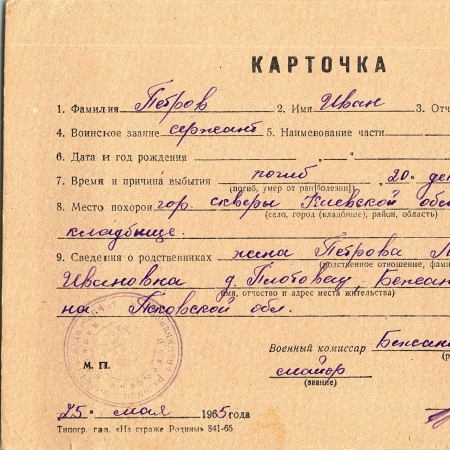 КАРТОЧКА
1. Фамилия Петров 2. Имя Иван 3. Отч
4. Воинское звание сержант 5. Наименование части
6. Дата и год рождения „ — "
7. Время и причина выбытия погиб „20" де
(погиб, умер от ран (болезни)
8. Место похорон гор. сквиры Киевской обл
(село, город (кладбище), район, область)
кладбище.
9. Сведения о родственниках жина Петрова
(родственное отношение, фами
Ивановна д. Плотовец, Бежан
имя, отчество и адрес места жительства)
на Псковской обл.
Военный комиссар Бежан
М. П.
майор
(звание)
„25" мая 1965 года
Типогр. газ. «На страже Родины» 841-65